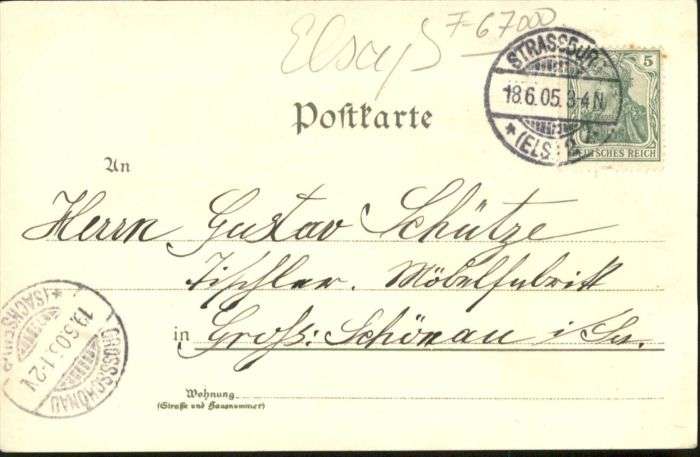 Elsaß F-67000
STRASSBURG
18.6.05. 3-4N
* (ELS.) 2
5
DEUTSCHES REICH
Postkarte
An
Herrn Gustav Schütze
Tischler. Möbelfabrik
in Groß: Schönau i/Sa.
GROSSSCHÖNAU * (SACHSEN)
19.6.05. 1-2N
Wohnung
(Straße und Hausnummer)